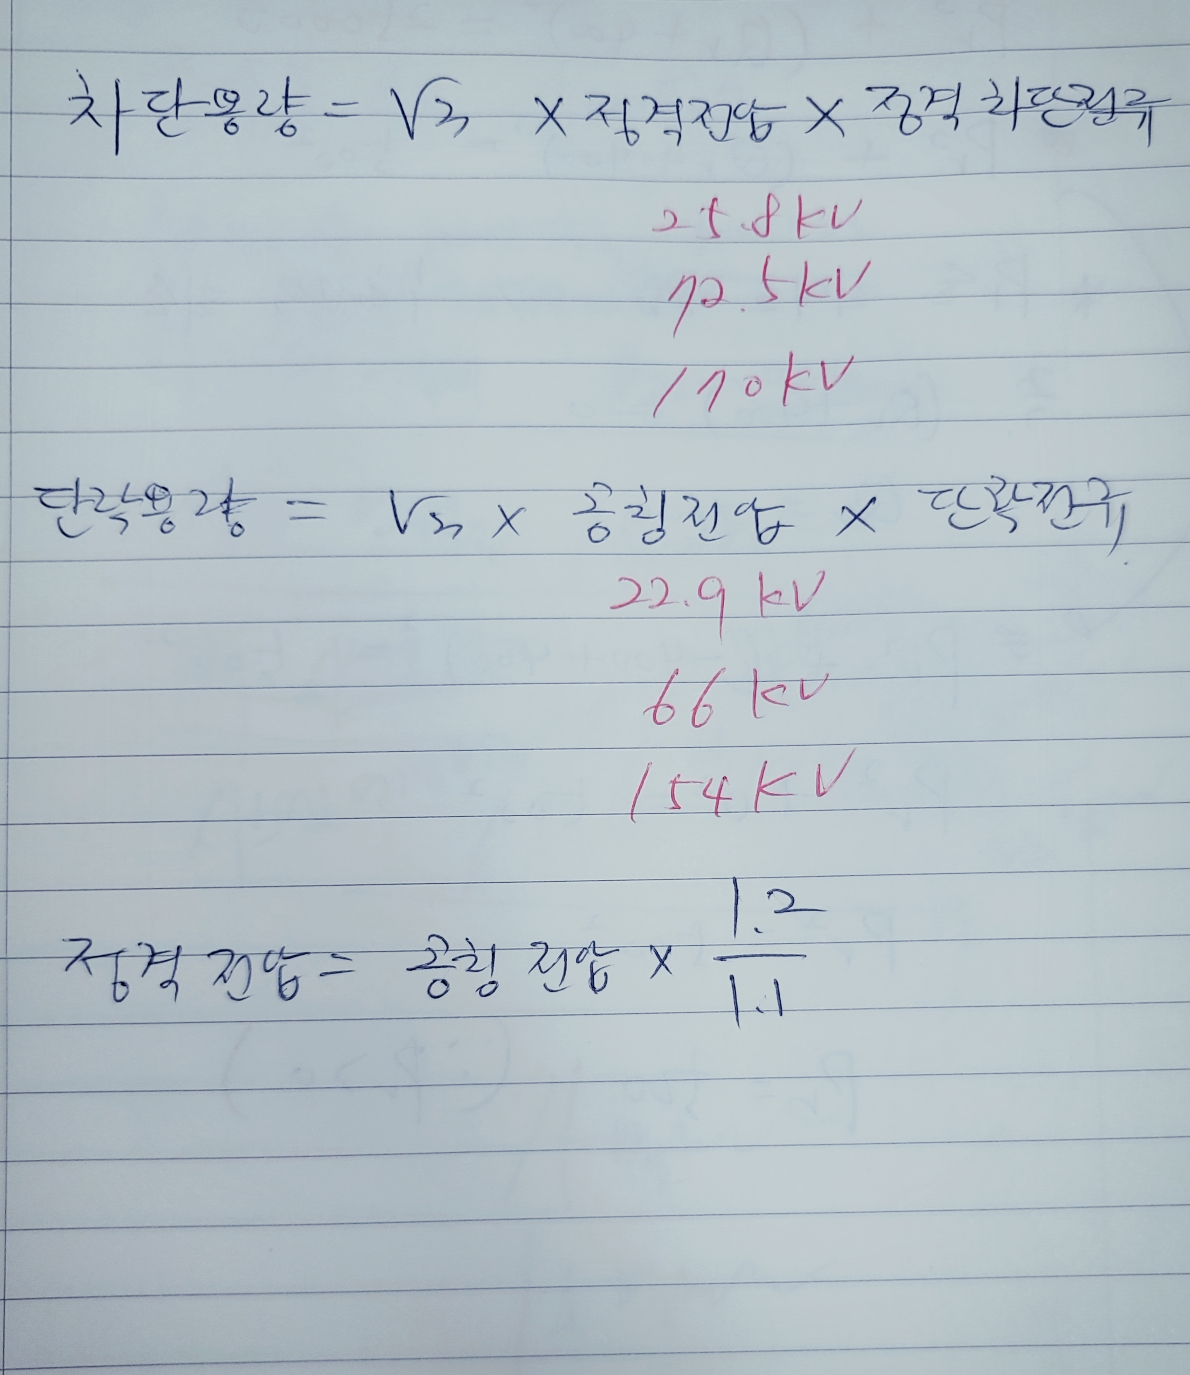 차단용량 = √3 × 정격전압 × 정격차단전류
25.8kV
72.5kV
170kV
단락용량 = √3 × 공칭전압 × 단락전류
22.9kV
66kV
154kV
정격전압 = 공칭전압 × 1.2/1.1